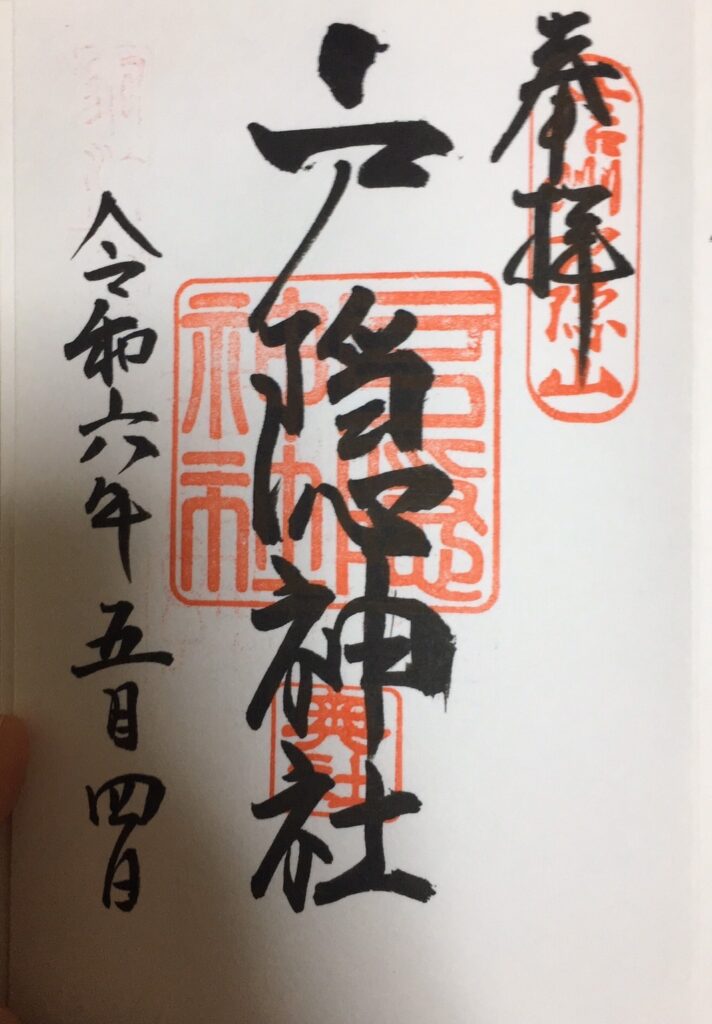 奉拝
信州戸隠山
戸隠神社
戸隠神社
奥社
令和六年五月四日